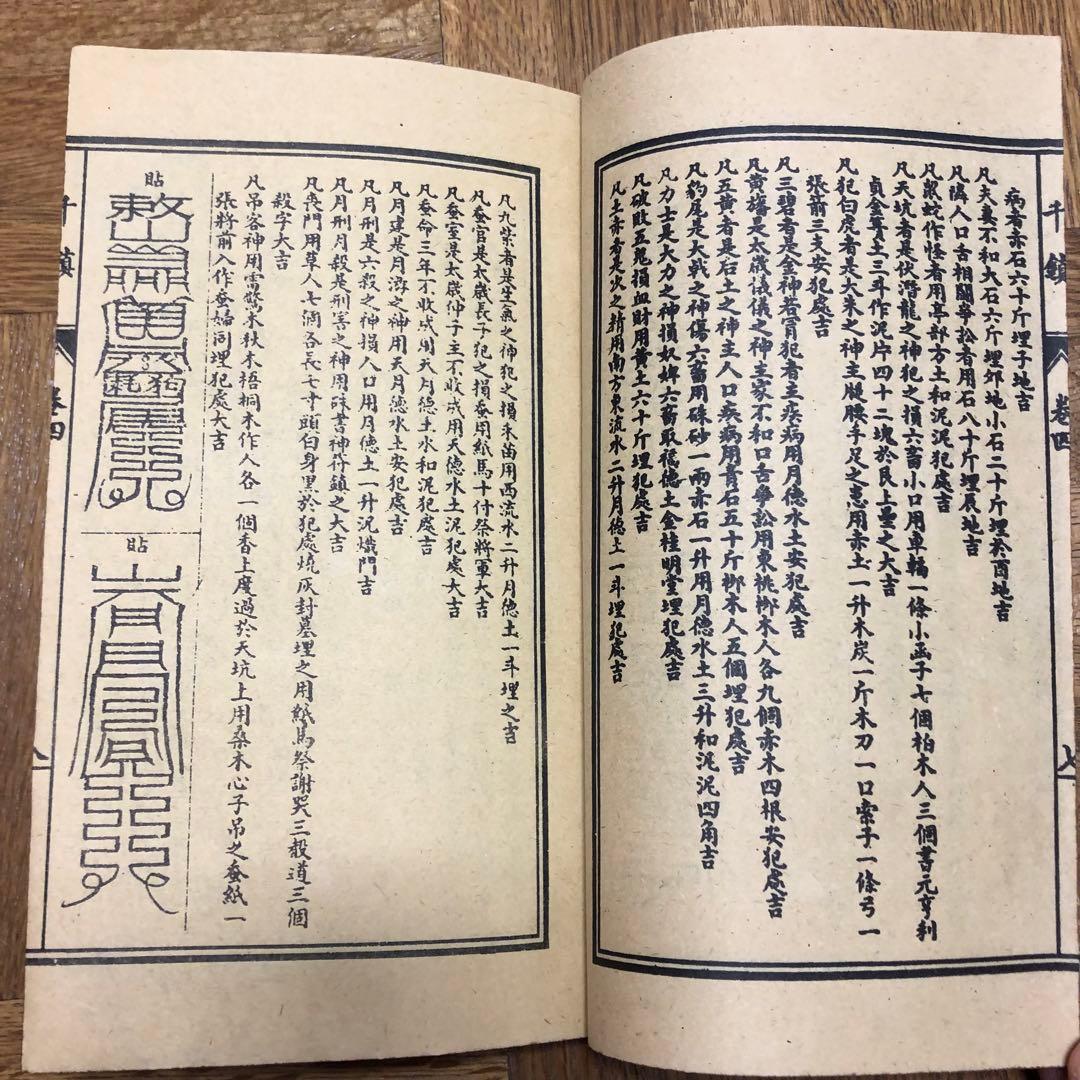 千鎮
卷四
七
病者赤石六十斤埋子地吉
凡夫妻不和大石六斤埋卯地小石二十斤埋於酉地吉
凡隣人口舌相關爭訟者用石八十斤埋辰地吉
凡鼠蛇作怪者用亭部方土和泥泥犯處吉
凡天坑者是伏潛龍之神犯之損六畜小口用車輻一條小函子七個柏木人三個書元亨利
貞金尊土三斗作泥片四十二塊於艮上壘之大吉
凡犯白虎者是大朱之神主腿腰手足之患用赤土一升木炭一斤木刀一口索子一條弓一
張箭三支安犯處吉
凡三碧者是金神若冒犯者主疾病用月德水土安犯處吉
凡黃旛是太歲儀儀之神主家不和口舌爭訟用東桃柳木人各九個赤木四根安犯處吉
凡五黃者是石土之神主人口疾病用青石五十斤柳木人五個埋犯處吉
凡豹尾是大戰之神傷六畜用硃砂一兩赤石一升用月德水土三升和泥泥四角吉
凡力士是大力之神損奴婢六畜取德土金桂明堂埋犯處吉
凡破敗五鬼損血財用黃土六十斤埋犯處吉
凡土赤者是火之精用南方東流水二升月德土一斗埋犯處吉
凡九紫者是生氣之神犯之損禾苗用西流水二升月德土一斗埋之吉
凡蚕官是太歲長子犯之損蚕用紙馬十付祭將軍大吉
凡蚕室是太歲仲子主不收成用天德水土泥犯處大吉
凡蚕命三年不收成用天月德土水和泥犯處吉
凡月建是月濟之神用天月德水土安犯處吉
凡月刑是六殺之神損人口用月德土一升泥熾門吉
凡月刑月殺是刑害之神用硃書神符鎮之大吉
凡喪門用草人七個各長七寸頭白身黑於犯處燒灰封墓埋之用紙馬祭謝哭三殺道三個
殺字大吉
凡吊客神用雷驚木秋木梧桐木作人各一個香上度過於天坑上用桑木心子吊之蚕紙一
張將前入作蚕婦同埋犯處大吉
貼
貼
千鎮
卷四
八